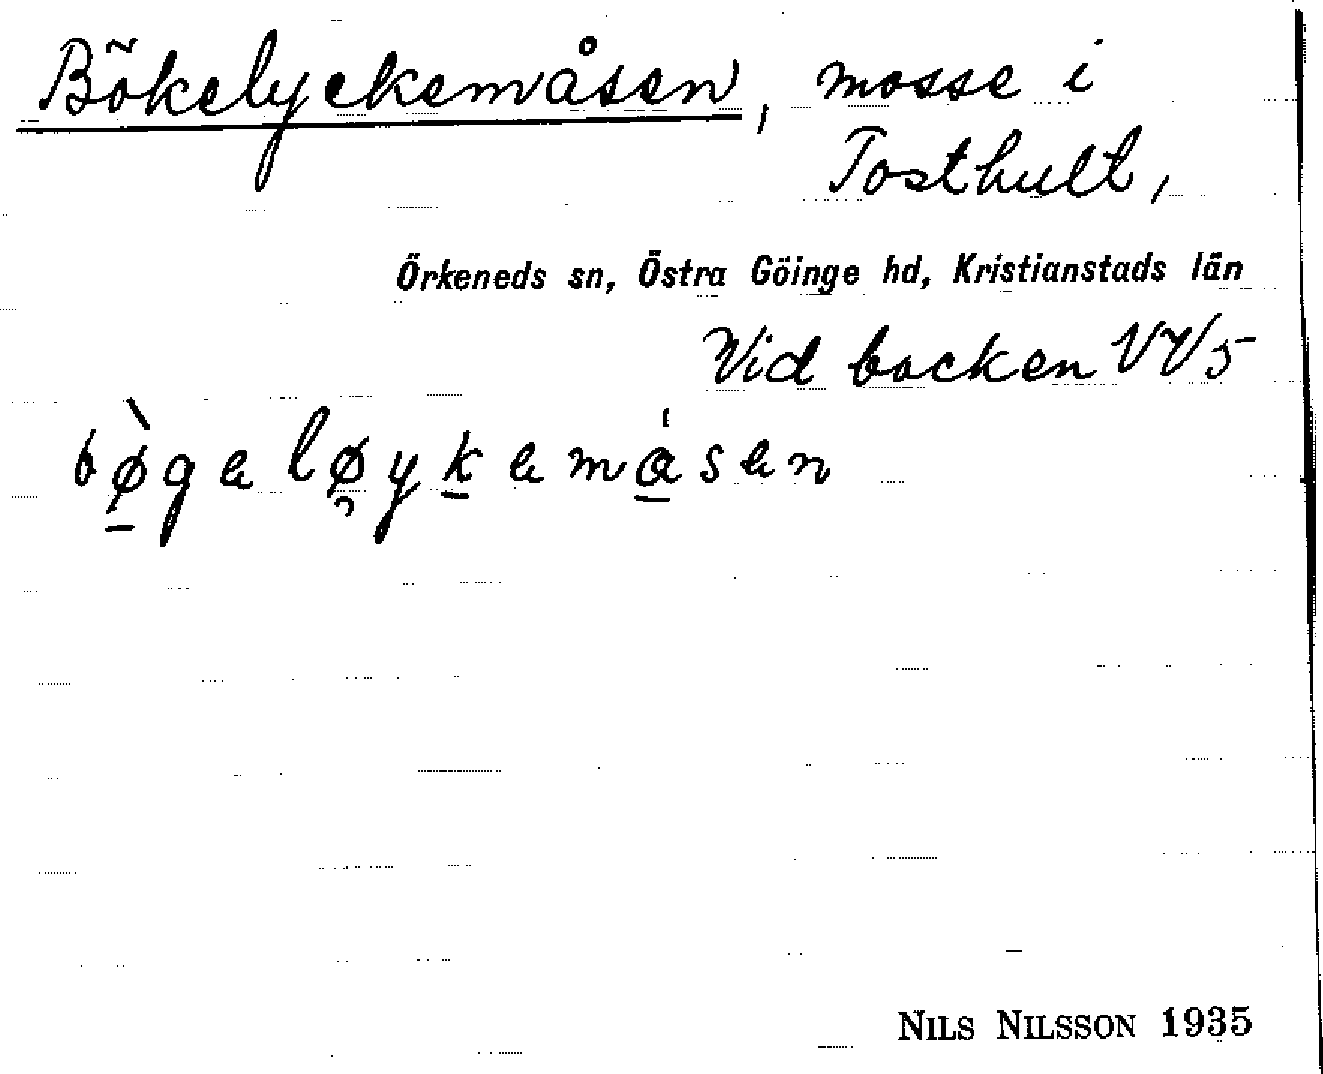 Bökelyckemåsen, mosse i
Tosthult,
Örkeneds sn, Östra Göinge hd, Kristianstads län
Vid backen VV5
bø̀geløykemåsen
NILS NILSSON 1935